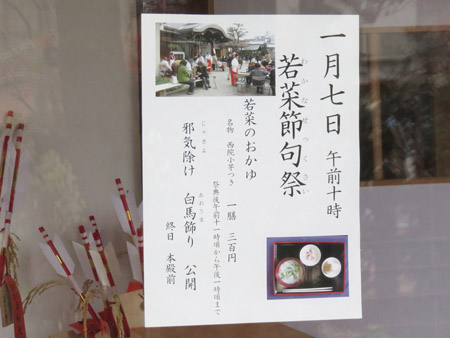 一月七日 午前十時
わかなせっくさい
若菜節句祭
若菜のおかゆ 一膳 三百円
名物 西院小芋つき
祭典後午前十一時頃から午後一時頃まで
じゃきよ
邪気除け
あおうま
白馬飾り 公開
終日 本殿前